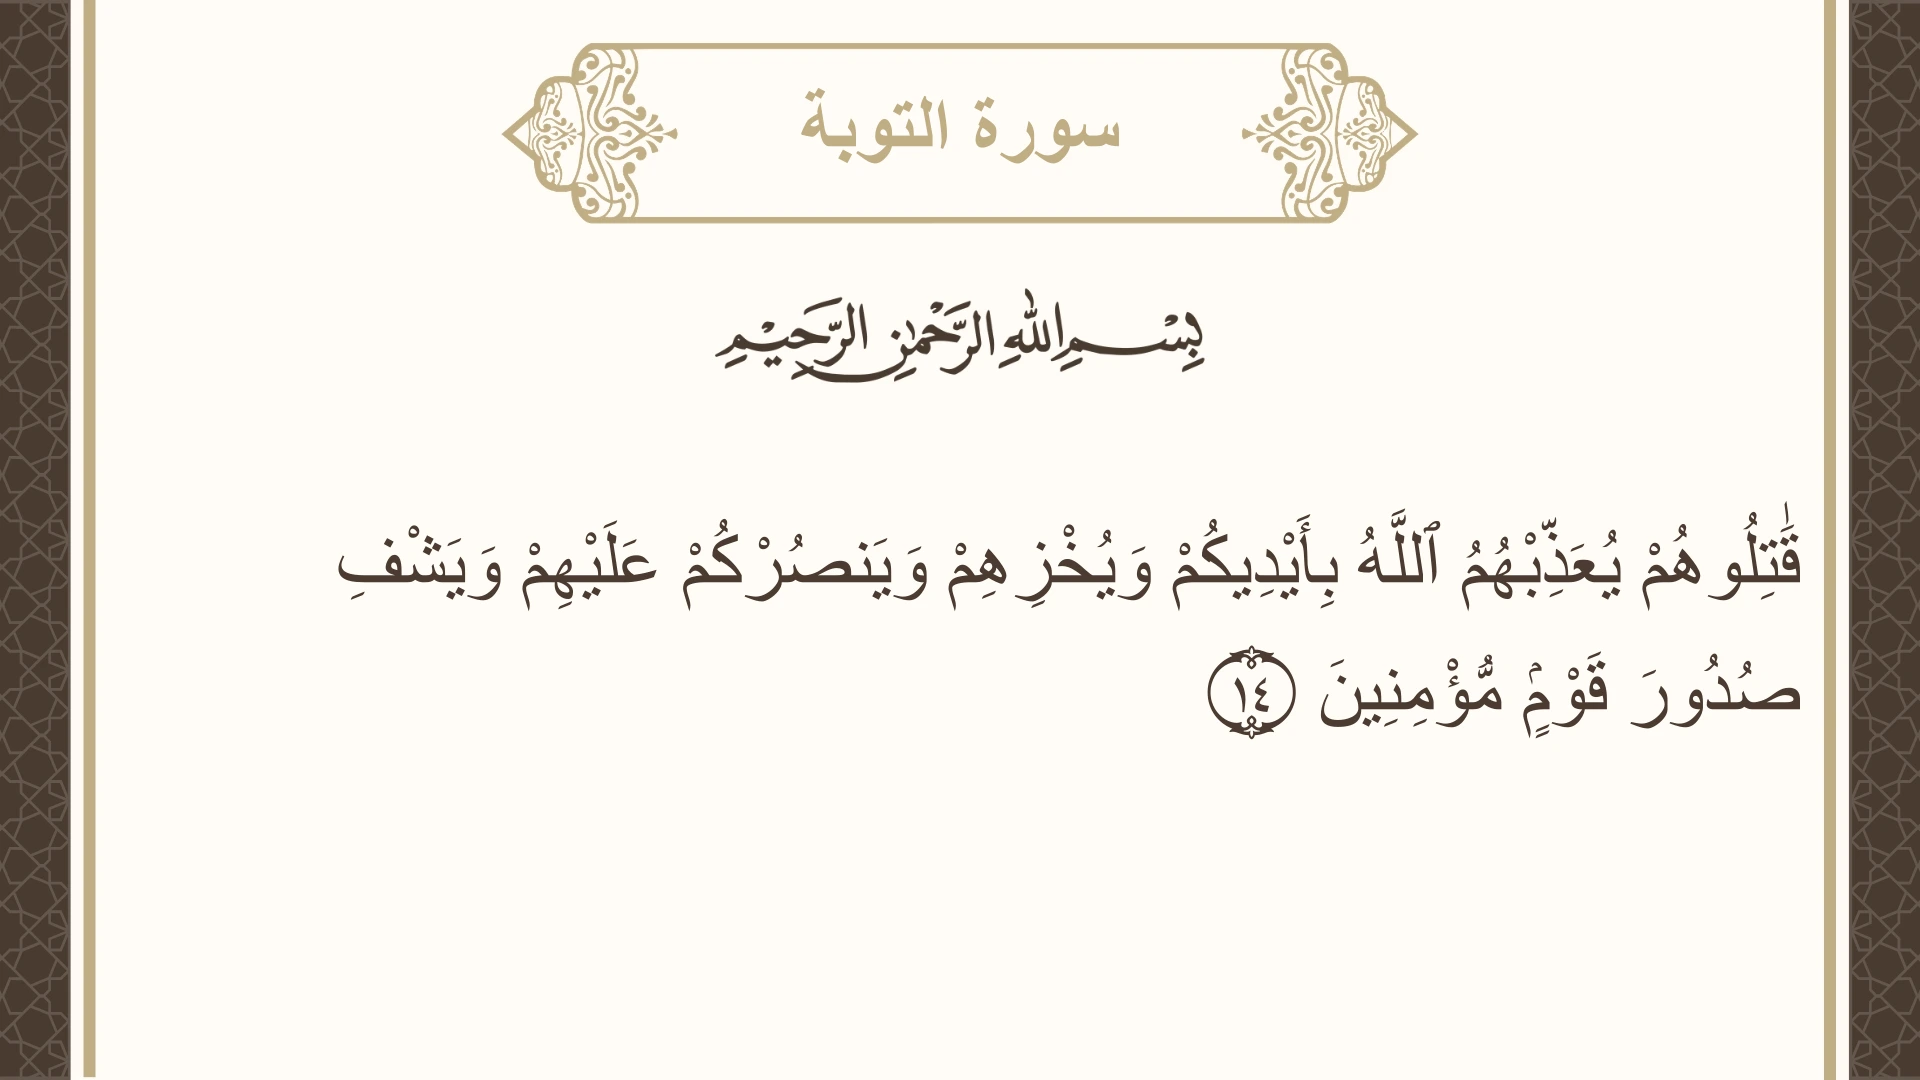 سورة التوبة
بِسْمِ اللهِ الرَّحْمٰنِ الرَّحِيْمِ
قَٰتِلُوهُمْ يُعَذِّبْهُمُ ٱللَّهُ بِأَيْدِيكُمْ وَيُخْزِهِمْ وَيَنصُرْكُمْ عَلَيْهِمْ وَيَشْفِ
صُدُورَ قَوْمٍۢ مُّؤْمِنِينَ ١٤